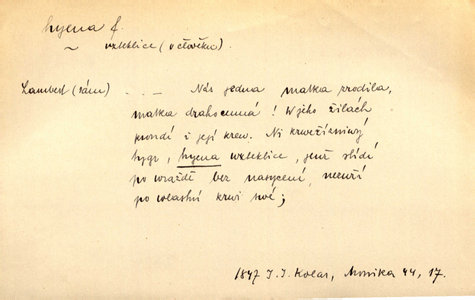 hyena f.
~ vzteklice (o člověku).
Lambert (sám) . — . — Nás jedna matka zrodila,
matka drahocenná! W jeho žilách
proudí i její krew. Ni krwežíznivý
tygr, hyena wzteklice, jenž slídí
po wraždě bez nasycení, nezuří
po wlastní krwi swé;
1847 J. J. Kolar, Monika 44, 17.